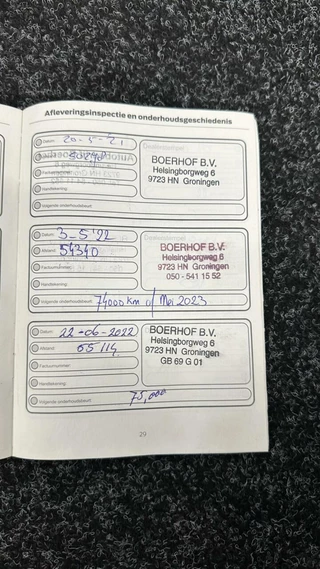 Afleveringsinspectie en onderhoudsgeschiedenis
Datum: 20-5-21
BOERHOF B.V.
Helsingborgweg 6
9723 HN Groningen
Factuurnummer:
Handtekening:
Volgende onderhoudsbeurt:
Datum: 3-5-'22
BOERHOF B.V.
Afstand: 54340
Helsingborgweg 6
9723 HN Groningen
Factuurnummer:
050 - 541 15 52
Handtekening:
Volgende onderhoudsbeurt: 74000 km of Mei 2023
Datum: 22-06-2022
BOERHOF B.V.
Helsingborgweg 6
Afstand: 65 114
9723 HN Groningen
Factuurnummer:
GB 69 G 01
Handtekening:
Volgende onderhoudsbeurt: 75,000
29